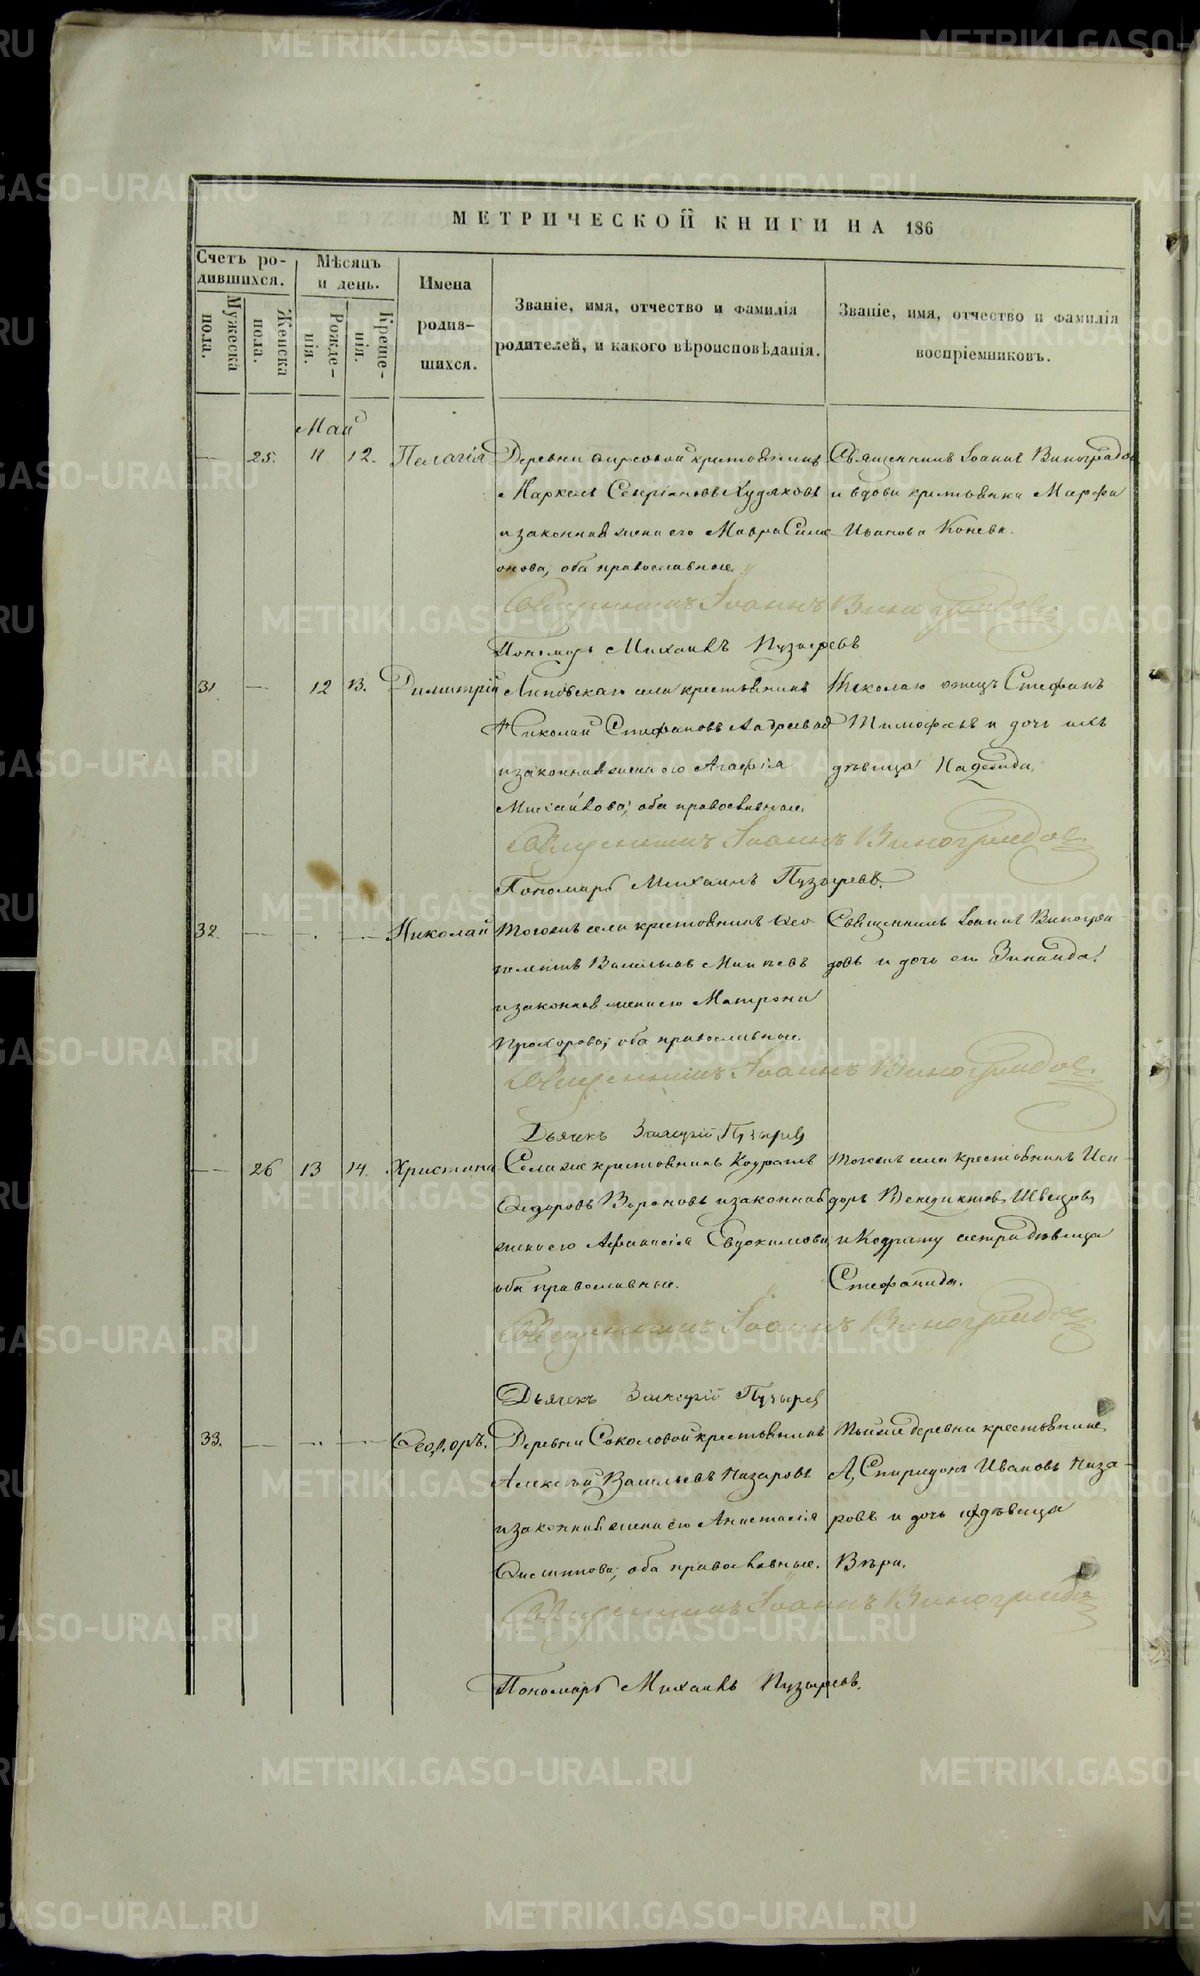 МЕТРИЧЕСКОЙ КНИГИ НА 186
Счетъ ро-
дившихся.
Мужеска пола.
Женска пола.
Мѣсяцъ
и день.
Рожде-
нія.
Креще-
нія.
Имена
родив-
шихся.
Званіе, имя, отчество и фамилія
родителей, и какого вѣроисповѣданія.
Званіе, имя, отчество и фамилія
воспріемниковъ.
Май
— 25. 11 12. Пелагія Деревни крестьянинъ Священникъ Іоаннъ Виноградов
Маркелъ Худяковъ и вдова крестьянка Марфа
и законная жена его Мавра Симе- Иванова Конева.
онова; оба православные.
Священникъ Іоаннъ Виноградовъ
Пономарь Михаилъ Пузыревъ
31 — 12 13. Димитрій Липовскаго села крестьянинъ Николаю отецъ Стефанъ
Николай Стефановъ и дочь ихъ
и законная жена его Агафія дѣвица Надежда.
Михайлова; оба православные.
Священникъ Іоаннъ Виноградов
Пономарь Михаилъ Пузыревъ.
32. — — — Николай Тогожъ села крестьянинъ Ѳео Священникъ Іоаннъ Виногра-
Васильевъ довъ и дочь его Зинаида.
и законная жена его Матрона
Прохорова; оба православные.
Священникъ Іоаннъ Виноградов
Дьячекъ Пузырев
— 26 13 14. Христина Села же крестьянинъ Кодратъ Тогожъ села крестьянинъ Иси-
Сидоровъ Вороновъ и законная доръ Венедиктовъ Швецовъ
жена его Афанасія Евдокимова и Кодрату сестра дѣвица
оба православные. Стефанида.
Священникъ Іоаннъ Виноградов
Дьячекъ Пузырев
33. — — — Ѳеодоръ. Деревни Соколовой крестьянинъ Тойже деревни крестьянине,
Алексѣй Васильевъ Назаровъ Спиридонъ Ивановъ Наза-
и законная жена его Анастасія ровъ и дочь дѣвица
оба православные. Вѣра.
Священникъ Іоаннъ Виноградов
Пономарь Михаилъ Пузыревъ.
METRIKI.GASO-URAL.RU